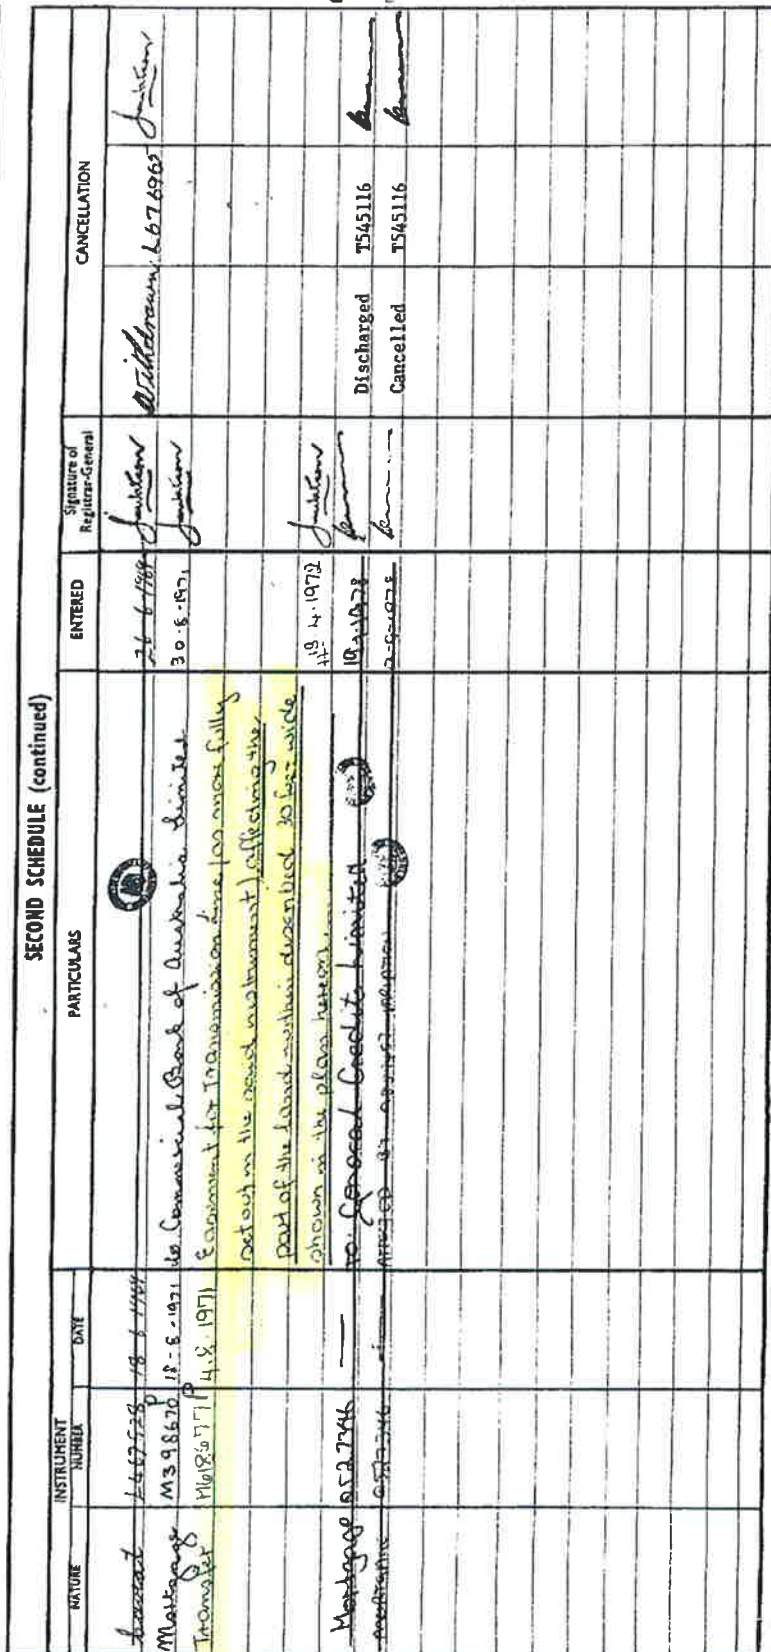 SECOND SCHEDULE (continued)
INSTRUMENT
NATURE NUMBER DATE PARTICULARS ENTERED Signature of Registrar-General CANCELLATION
Caveat 18 6 1969 26-6-1969 Withdrawn L676965
Mortgage M398670 18-8-1971 to Commercial Bank of Australia Limited 30-8-1971
Transfer M618677P 4.8.1971 Easement for Transmission Line (as more fully
set out in the said instrument) affecting the
part of the land within described 30 feet wide
shown in the plan hereon. 4.1972
Mortgage Q527346 — to General Credits Limited Discharged T545116
Cancelled T545116